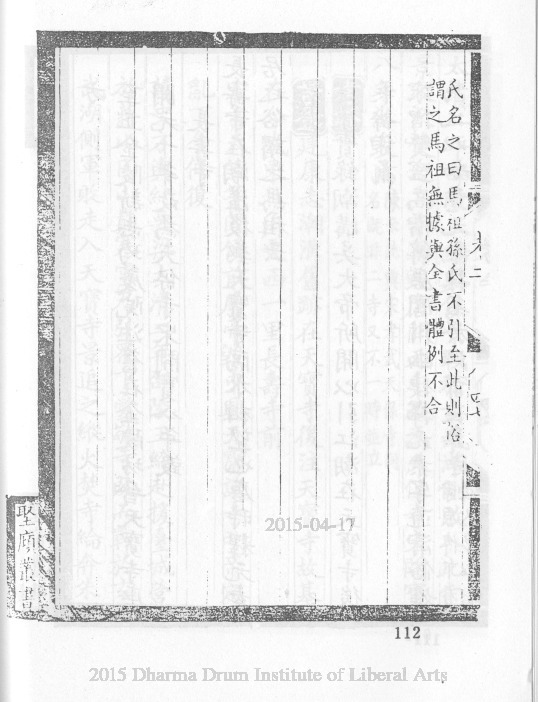 氏名之曰馬祖孫氏不引至此則俗
謂之馬祖無據與全書體例不合
卷二
聖廎叢書
2015-04-17
112
2015 Dharma Drum Institute of Liberal Arts